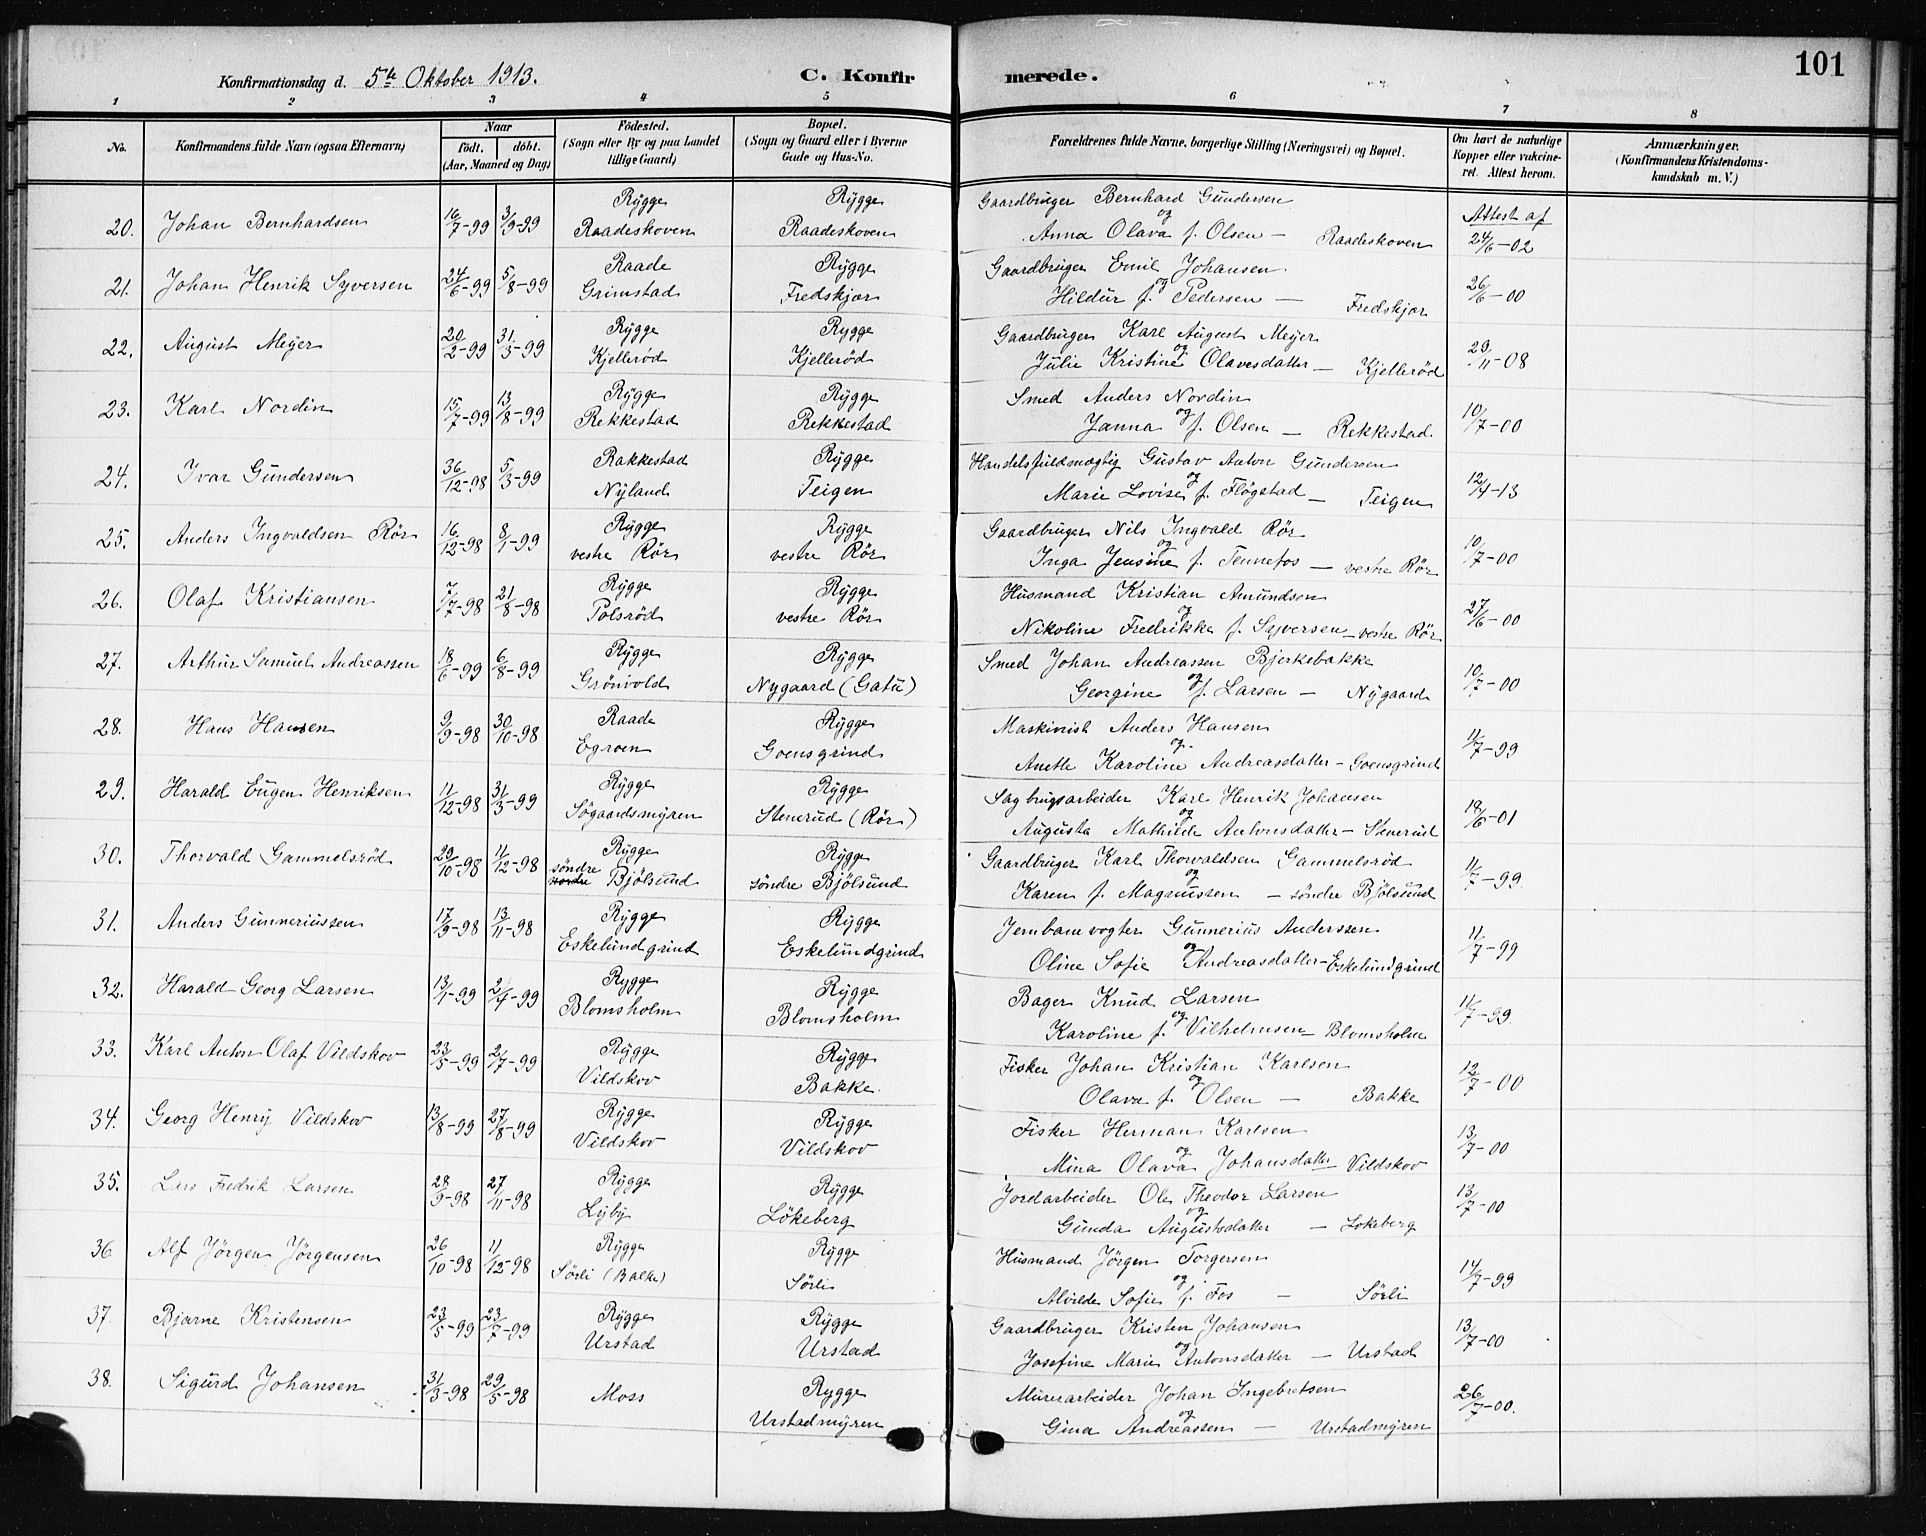 101
Konfirmationsdag d. 5te Oktober 1913.
C. Konfirmerede.
1 2 3 4 5 6 7 8
No.
Konfirmandens fulde Navn (ogsaa Efternavn)
Naar
født. døbt.
(Aar, Maaned og Dag)
Fødested.
(Sogn eller By og paa Landet
tillige Gaard)
Bopæl.
(Sogn og Gaard eller i Byerne
Gade og Hus-No.
Forældrenes fulde Navne, borgerlige Stilling (Næringsvei) og Bopæl.
Om havt de naturlige
Kopper eller vakcine-
ret. Attest herom.
Anmærkninger.
(Konfirmandens Kristendoms-
kundskab m. V.)
Rygge Rygge Gaardbruger Bernhard Gundersen Attest af
20. Johan Bernhardsen 16/7-99 3/9-99 Raadeskoven Raadeskoven og Anna Olava f. Olsen - Raadeskoven 24/6-02
Raade Rygge Gaardbruger Emil Johansen
21. Johan Henrik Syversen 24/6-99 5/8-99 Grimstad Fredskjær og Hildur f. Pedersen - Fredskjær 26/6-00
Rygge Rygge Gaardbruger Karl August Meyer
22. August Meyer 20/2-99 31/3-99 Kjellerød Kjellerød og Julie Kristine Olavesdatter - Kjellerød 29/11-08
Rygge Rygge Smed Anders Nordin
23. Karl Nordin 15/7-99 13/8-99 Rekkestad Rekkestad og Janna f. Olsen - Rekkestad 10/7-00
Rakkestad Rygge Handelsfuldmægtig Gustav Anton Gundersen
24. Ivar Gundersen 36/12-98 5/3-99 Nyland Teigen og Marie Lovise f. Fløgstad - Teigen 12/4-13
Rygge Rygge Gaardbruger Nils Ingvald Rör
25. Anders Ingvaldsen Rör 16/12-98 8/1-99 vestre Rör vestre Rör og Inga Jensine f. Tennefos - vestre Rör 10/7-00
Rygge Rygge Husmand Kristian Amundsen
26. Olaf Kristiansen 7/7-98 21/8-98 Polsröd vestre Rör og Nikoline Fredrikke f. Syversen - vestre Rör 27/6-00
Rygge Rygge Smed Johan Andreassen Bjerkebakke
27. Arthur Samuel Andreassen 18/6-99 6/8-99 Grönvold Nygaard (Gatu) og Georgine f. Larsen - Nygaard 10/7-00
Raade Rygge Maskinist Anders Hansen
28. Hans Hansen 9/9-98 30/10-98 Egroen Goensgrind og Anette Karoline Andreasdatter - Goensgrind 11/7-99
Rygge Rygge Sagbrugsarbeider Karl Henrik Johansen
29. Harald Eugen Henriksen 11/12-98 31/3-99 Sögaardsmyren Stenerud (Rör) og Augusta Mathilde Antonsdatter - Stenerud 18/6-01
Rygge Rygge Gaardbruger Karl Thorvaldsen Gammelsröd
30. Thorvald Gammelsröd 29/10-98 11/12-98 söndre nordre Bjölsund söndre Bjölsund og Karen f. Magnussen - söndre Bjölsund 11/7-99
Rygge Rygge Jernbanevogter Gunnerius Anderssen
31. Anders Gunneriussen 17/9-98 13/11-98 Eskelundgrind Eskelundgrind og Oline Sofie Andreasdatter - Eskelundgrind 11/7-99
Rygge Rygge Bager Knud Larsen
32. Harald Georg Larsen 13/1-99 2/4-99 Blomsholm Blomsholm og Karoline f. Vilhelmsen - Blomsholm 11/7-99
Rygge Rygge Fisker Johan Kristian Karlsen
33. Karl Anton Olaf Vildskov 23/5-99 2/7-99 Vildskov Bakke og Olava f. Olsen - Bakke 12/7-00
Rygge Rygge Fisker Herman Karlsen
34. Georg Henry Vildskov 13/8-99 27/8-99 Vildskov Vildskov og Mina Olava Johansdatter Vildskov 13/7-00
Rygge Rygge Jordarbeider Ole Theodor Larsen
35. Fredrik Larsen 28/9-98 27/11-98 Lyby Lökeberg og Gunda Augustsdatter - Lokeberg 13/7-00
Rygge Rygge Husmand Jørgen Torgersen
36 Alf Jörgen Jörgensen 26/10-98 11/12-98 Sörli (Balke) Sörli og Alvilde Sofie f. Fos - Sörli 14/7-99
Rygge Rygge Gaardbruger Kristen Johansen
37. Bjarne Kristensen 23/5-99 23/7-99 Urstad Urstad og Josefine Marie Antonsdatter - Urstad 13/7-00
Rygge Murerarbeider Johan Ingebretsen
38. Sigurd Johansen 31/3-98 29/5-98 Moss Urstadmyren og Gina Andreassen - Urstadmyren 26/7-00.